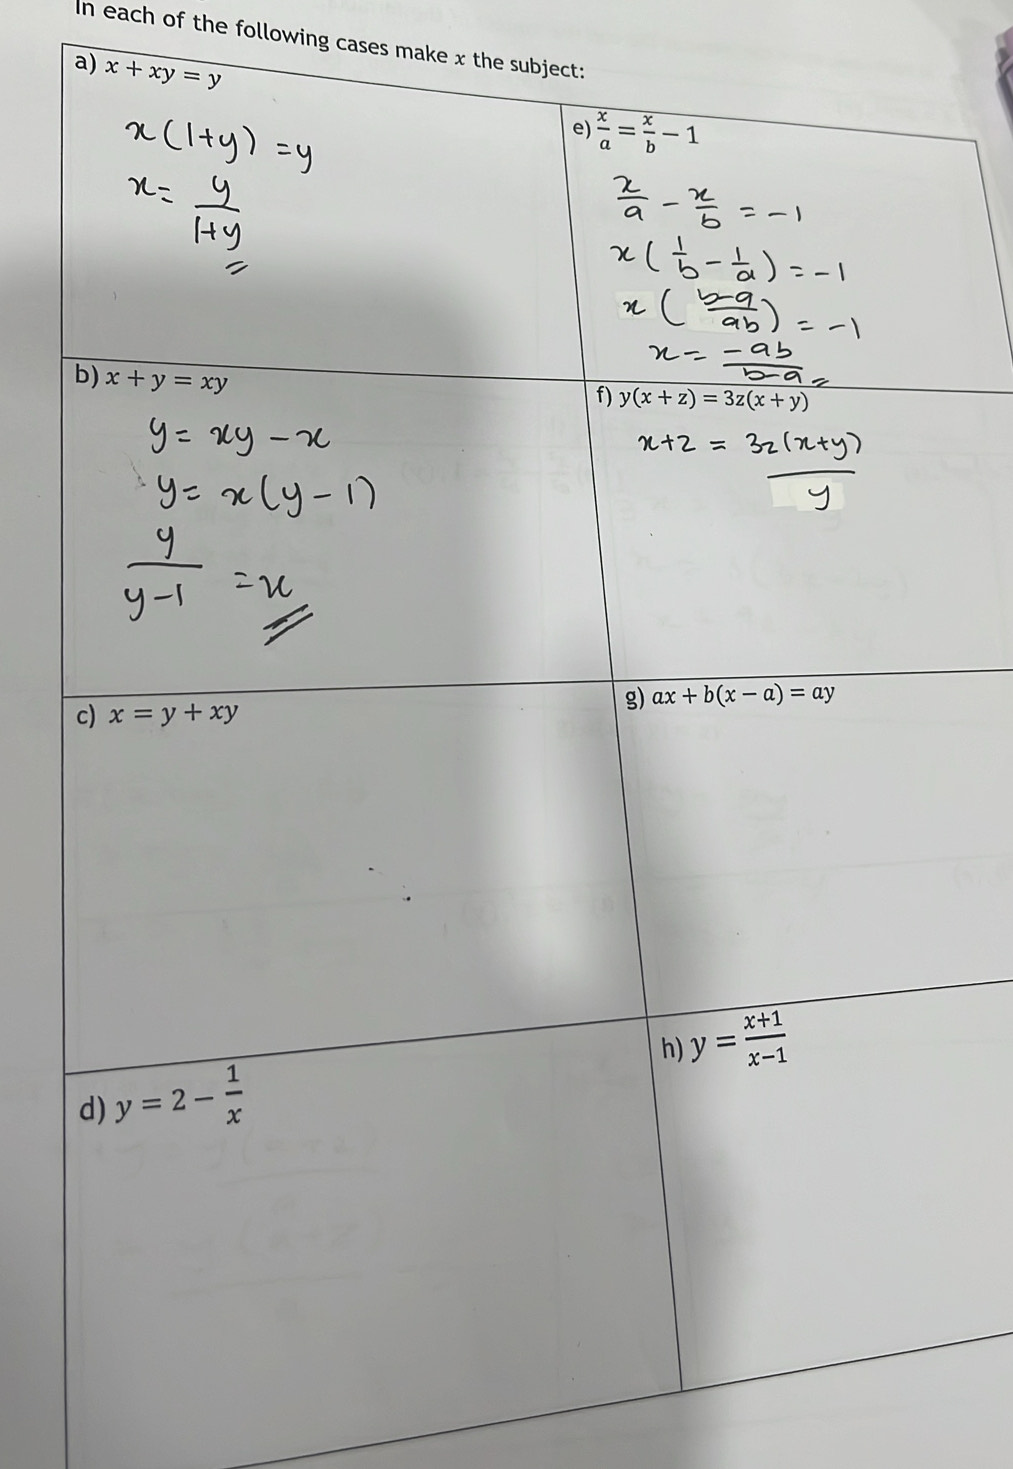 In each of the following cases make x the subject:
a) x + xy = y
x(1+y) = y
x = y/(1+y)
b) x + y = xy
y = xy - x
y = x(y - 1)
y/(y-1) = x
c) x = y + xy
d) y = 2 - 1/x
e) x/a = x/b - 1
x/a - x/b = -1
x(1/b - 1/a) = -1
x((b-a)/ab) = -1
x = -ab/(b-a) =
f) y(x + z) = 3z(x + y)
x+z = 3z(x+y)/y
g) ax + b(x - a) = ay
h) y = (x+1)/(x-1)